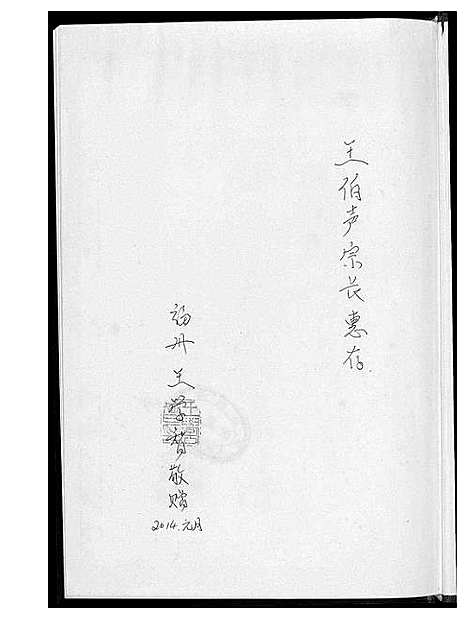 王伯声宗长惠存
福州王学智敬赠
2014.元月